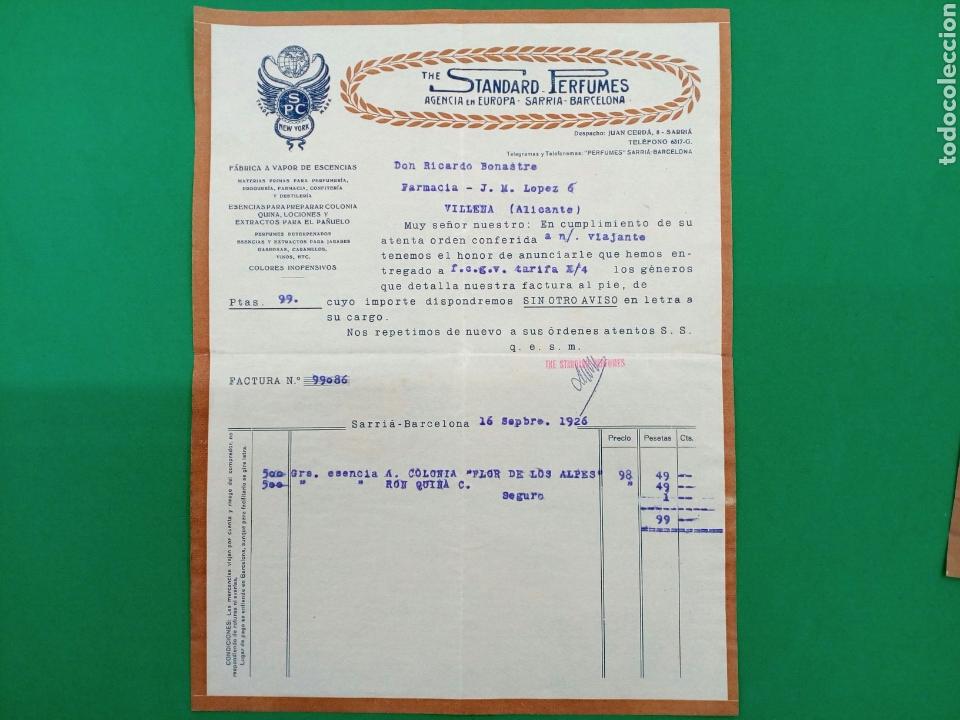 THE STANDARD PERFUMES
AGENCIA EN EUROPA - SARRIA - BARCELONA
TRADE MARK
SPC
NEW YORK
Despacho: JUAN CERDÁ, 8 - SARRIÁ
TELÉFONO 6317-G.
Telegramas y Telefonemas: "PERFUMES" SARRIÁ-BARCELONA
FÁBRICA A VAPOR DE ESCENCIAS
MATERIAS PRIMAS PARA PERFUMERÍA,
DROGUERÍA, FARMACIA, CONFITERÍA
Y DESTILERÍA
ESENCIAS PARA PREPARAR COLONIA
QUINA, LOCIONES Y
EXTRACTOS PARA EL PAÑUELO
PERFUMES DETERPENADOS
ESENCIAS Y EXTRACTOS PARA JARABES
GASEOSAS, CARAMELOS,
VINOS, ETC.
COLORES INOFENSIVOS
Don Ricardo Bonastre
Farmacia - J. M. Lopez 6
VILLENA (Alicante)
Muy señor nuestro: En cumplimiento de su
atenta orden conferida a n/. viajante
tenemos el honor de anunciarle que hemos en-
tregado a f.c.g.v. tarifa X/4 los géneros
que detalla nuestra factura al pie, de
Ptas. 99.- cuyo importe dispondremos SIN OTRO AVISO en letra a
su cargo.
Nos repetimos de nuevo a sus órdenes atentos S. S.
q. e. s. m.
THE STANDARD PERFUMES
FACTURA N.º 99086
Sarriá-Barcelona 16 Sepbre. 1926
Precio Pesetas Cts.
500 Grs. esencia A. COLONIA "FLOR DE LOS ALPES" 98 49 --
500 " " RON QUINA C. " 49 --
Seguro 1 --
99 --
CONDICIONES: Las mercancías viajan por cuenta y riesgo del comprador, no
respondiendo de roturas ni averías.
Lugar de pago se entiende en Barcelona, aunque para facilitarlo se gire letra.
todocoleccion